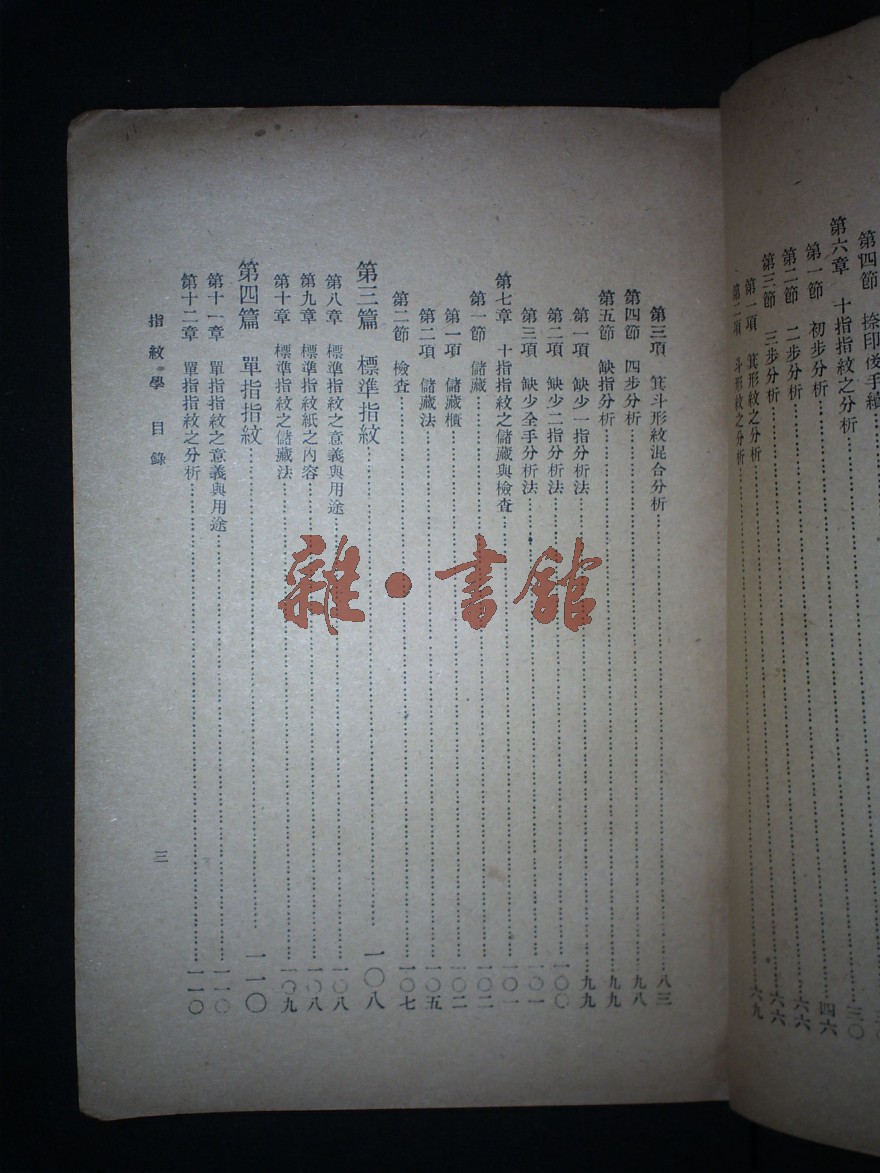 第四節 捺印後手續
第六章 十指指紋之分析……三〇
第一節 初步分析……四六
第二節 二步分析……六六
第三節 三步分析……六六
第一項 箕形紋之分析……六九
第二項 斗形紋之分析……
第三項 箕斗形紋混合分析……八三
第四節 四步分析……九八
第五節 缺指分析……九九
第一項 缺少一指分析法……九九
第二項 缺少二指分析法……一〇〇
第三項 缺少全手分析法……一〇一
第七章 十指指紋之儲藏與檢查……一〇一
第一節 儲藏……一〇二
第一項 儲藏櫃……一〇二
第二項 儲藏法……一〇五
第二節 檢查……一〇七
第三篇 標準指紋……一〇八
第八章 標準指紋之意義與用途……一〇八
第九章 標準指紋紙之內容……一〇八
第十章 標準指紋之儲藏法……一〇九
第四篇 單指指紋……一一〇
第十一章 單指指紋之意義與用途……一一〇
第十二章 單指指紋之分析……一一〇
指紋學 目錄
三
雜·書館